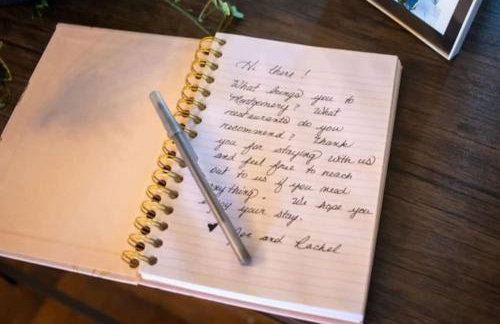 Hi there!
What brings you to
Montgomery? What
restaurants do you
recommend? Thank
you for staying with us
and feel free to reach
out to us if you need
anything. We hope you
your stay.
and Rachel